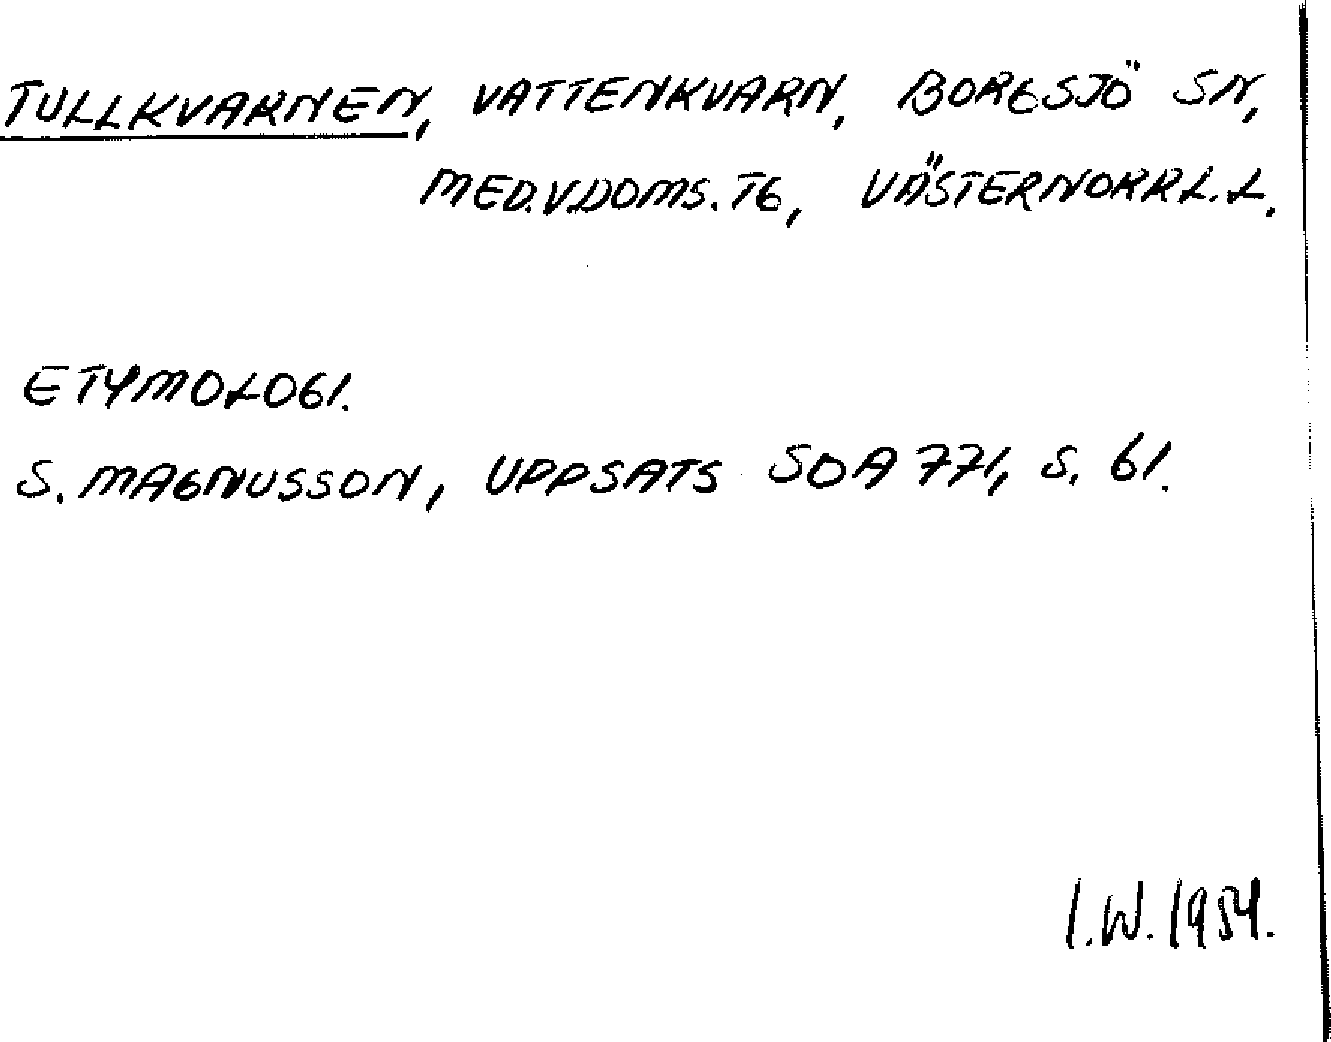 TULLKVARNEN, VATTENKVARN, BORGSJÖ SN,
MED.V.DOMS.TG, VÄSTERNORRL.L.
ETYMOLOGI.
S. MAGNUSSON, UPPSATS SOA 771, S. 61.
I.W. 1954.